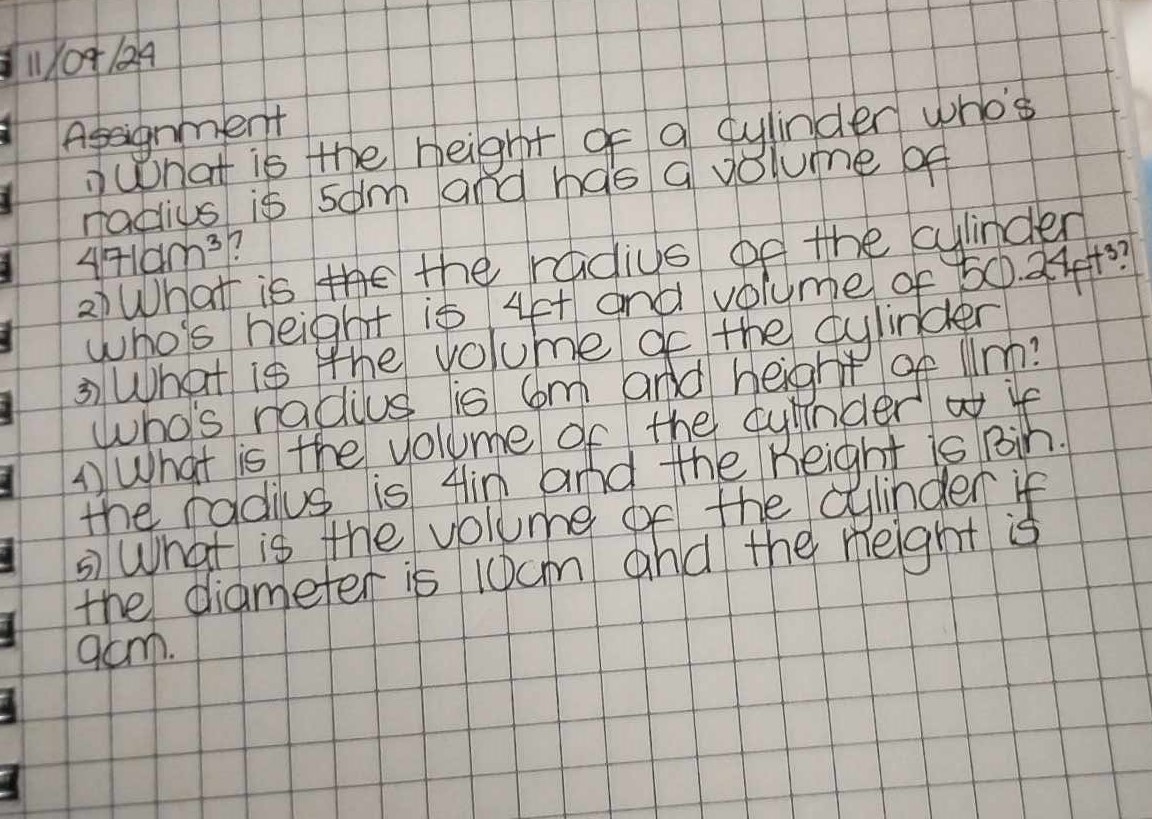 11/09/24
Assignment
1) What is the height of a cylinder who's
radius is 5dm and has a volume of
471dm³?
2) What is the the radius of the cylinder
who's height is 4ft and volume of 50.24ft³?
3) What is the volume of the cylinder
who's radius is 6m and height of 11m?
4) What is the volume of the cylinder if
the radius is 4in and the height is 13in.
5) What is the volume of the cylinder if
the diameter is 10cm and the height is
9cm.